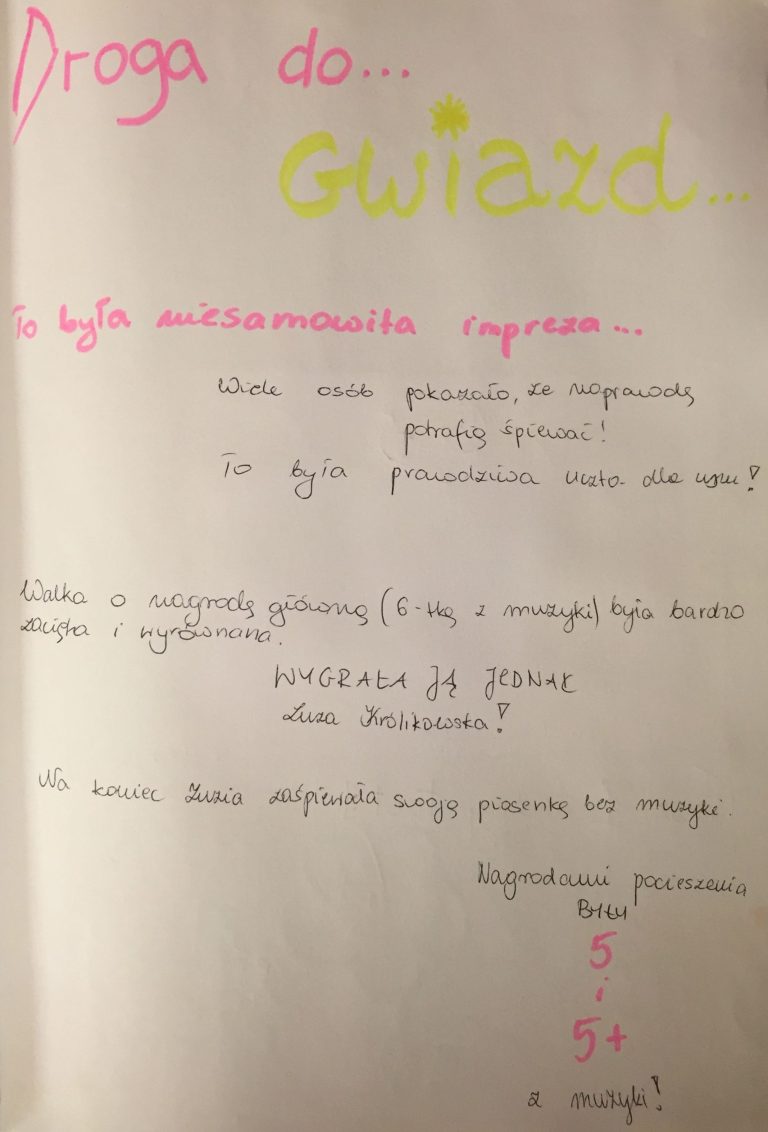 Droga do...
Gwiazd...
To była niesamowita impreza...
Wiele osób pokazało, że naprawdę
potrafią śpiewać!
To była prawdziwa uczta dla uszu!
Walka o nagrodę główną (6-tkę z muzyki) była bardzo
zacięta i wyrównana.
WYGRAŁA JĄ JEDNAK
Zuza Królikowska!
Na koniec Zuzia zaśpiewała swoją piosenkę bez muzyki.
Nagrodami pocieszenia
BYŁY
5
i
5+
z muzyki!